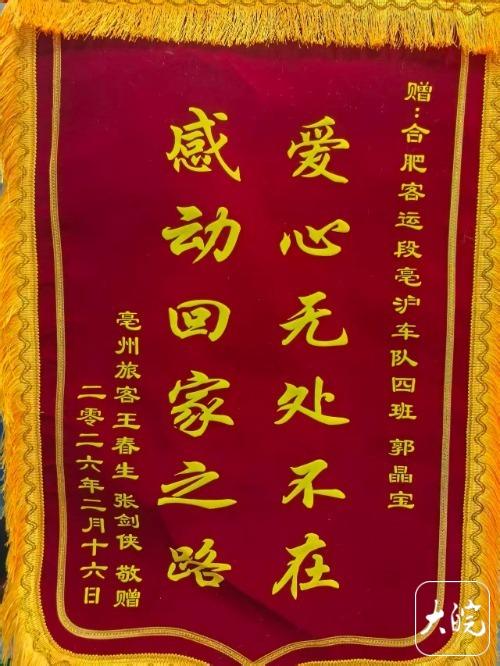 赠：合肥客运段亳沪车队四班 郭晶宝
爱心无处不在
感动回家之路
亳州旅客王春生 张剑侠 敬赠
二零二六年二月十六日
大皖